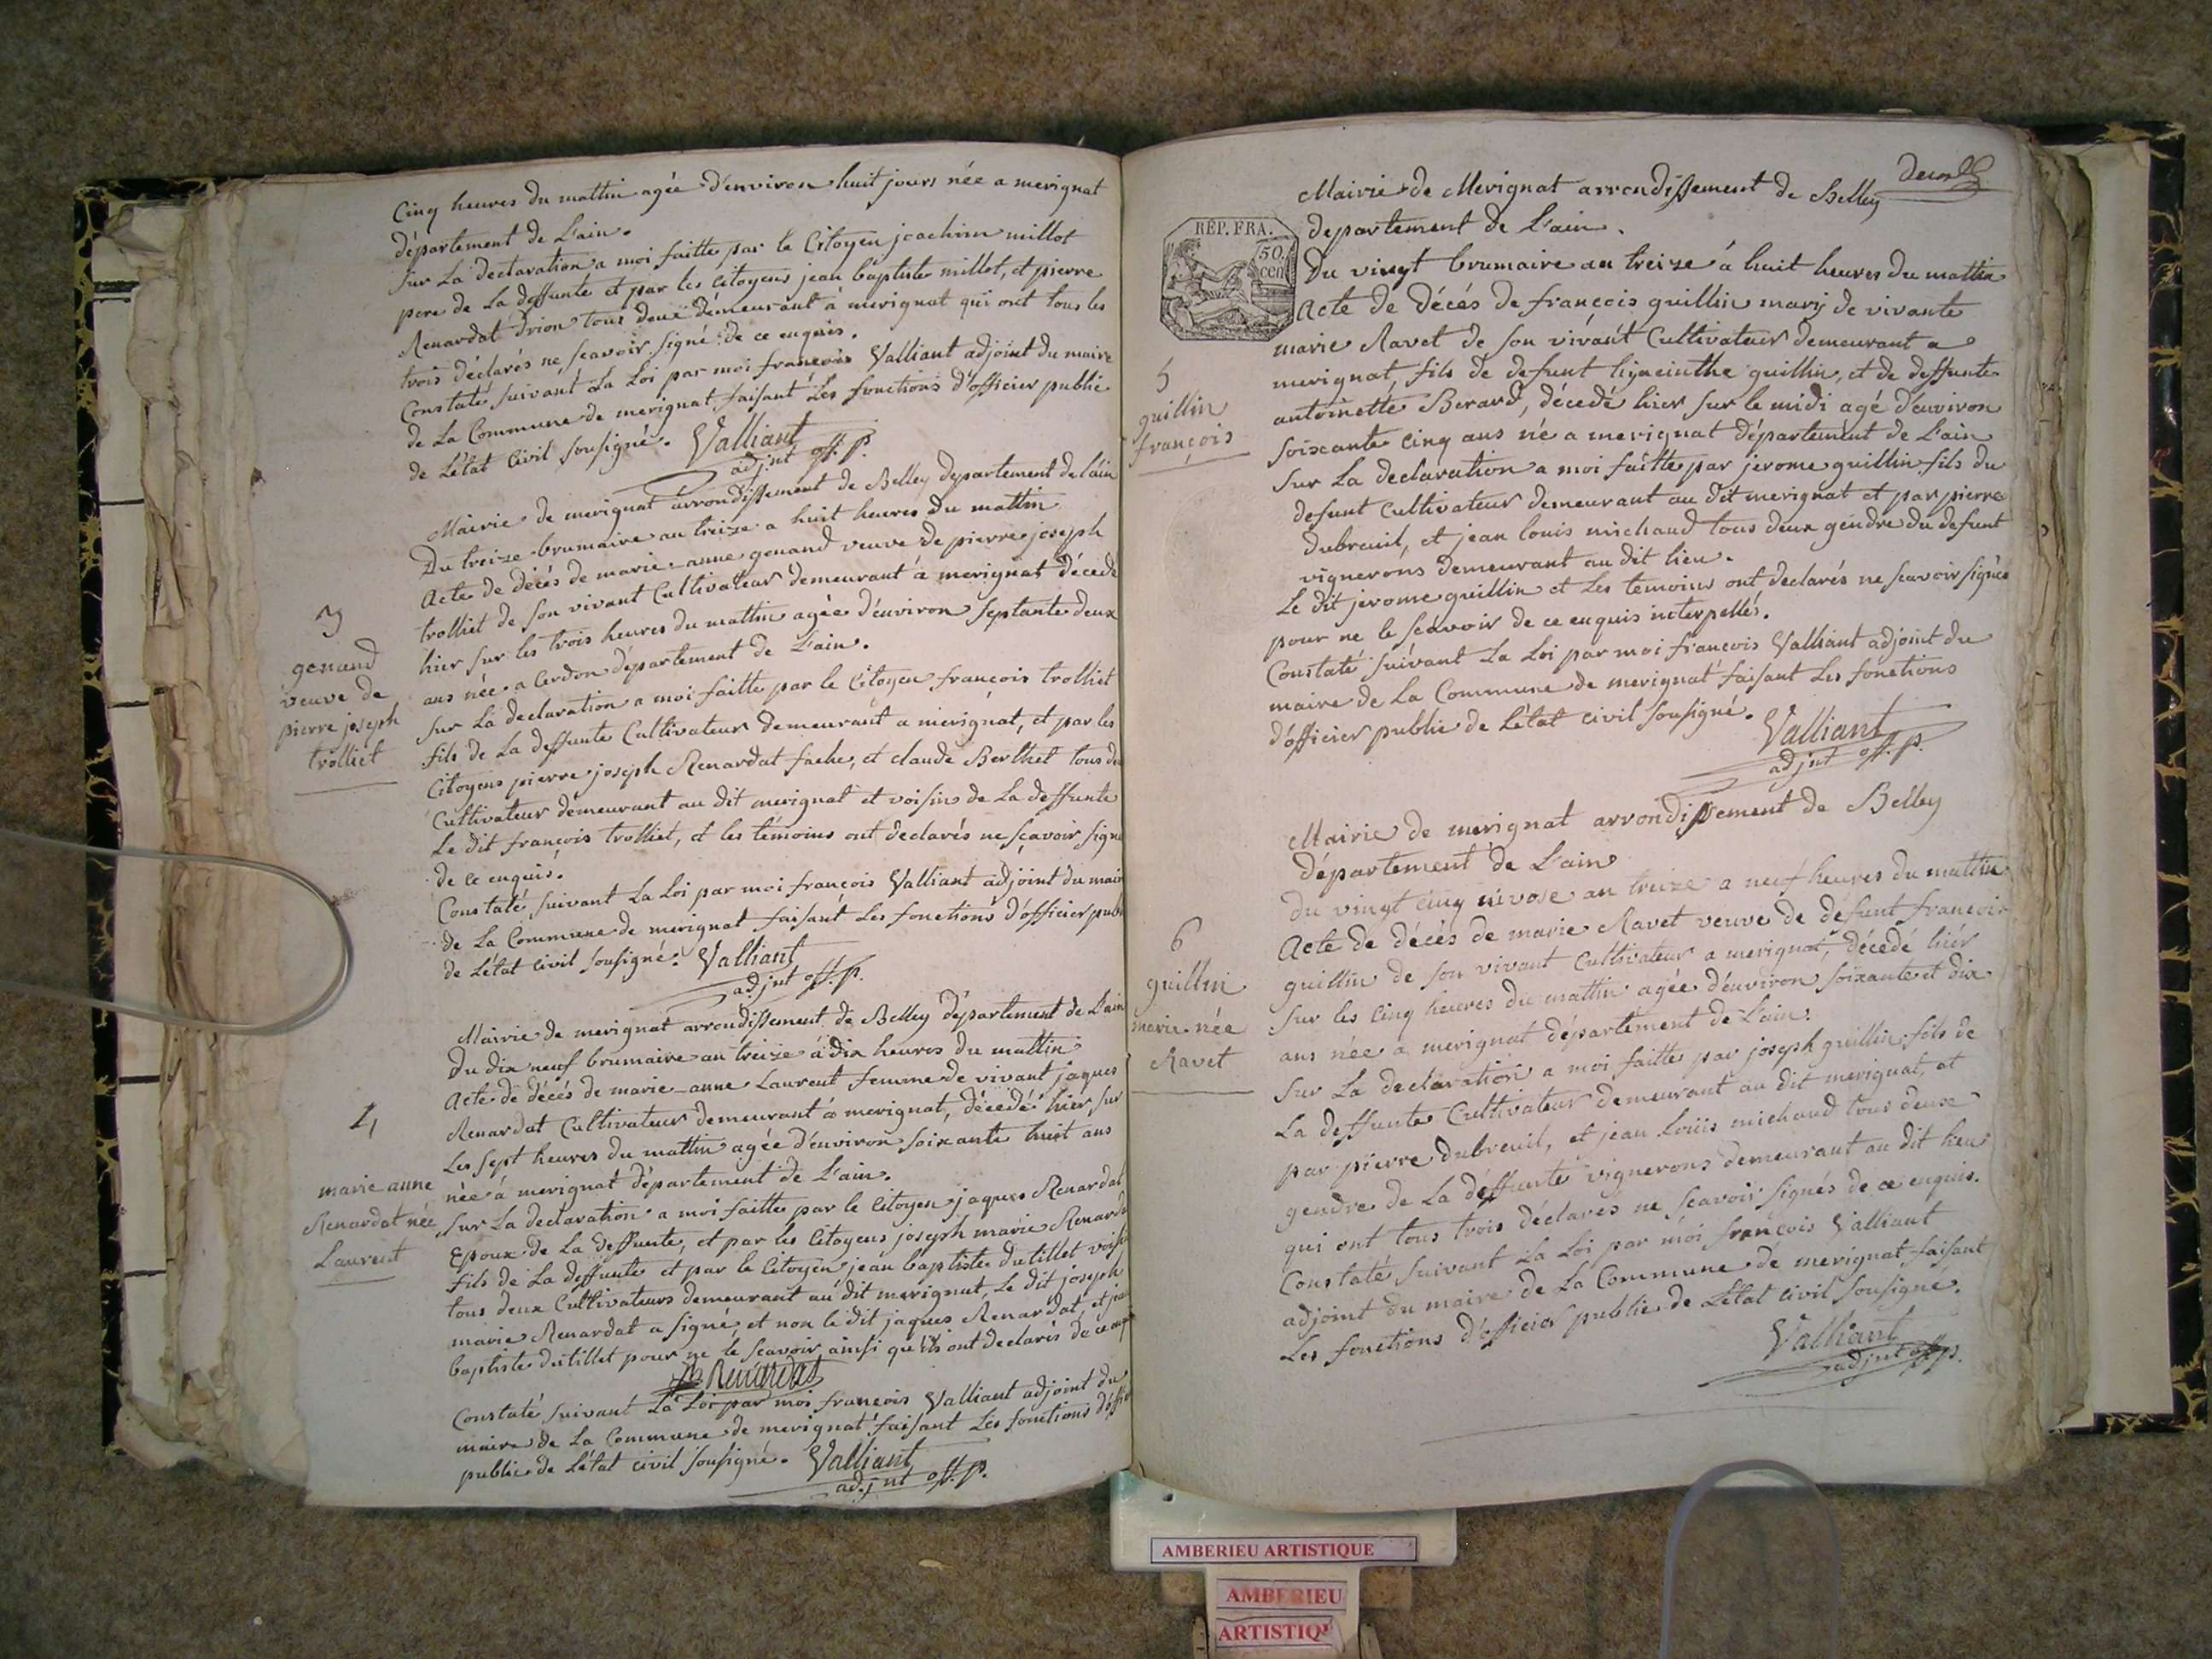 Cinq heures du mattin agée d'environ huit jours née a merignat
département de L'ain.
Sur La declaration a moi faitte par le Citoyen joachim millot
pere de La deffunte et par les citoyens jean baptiste millot, et pierre
Renardat Drion tous deux demeurant à merignat qui ont tous les
trois déclarés ne scavoir signé de ce enquis.
Constaté suivant La Loi par moi francois Valliant adjoint du maire
de La Commune de merignat, faisant Les fonctions d'officier public
de L'état Civil sousigné. Valliant
adjnt off. p.
Mairie de merignat arrondissement de Belley departement de L'ain
Du treize brumaire an treize a huit heures du mattin
Acte de décés de marie-anne genand veuve de pierre joseph
trolliet de son vivant Cultivateur demeurant à merignat décedé
hier sur les trois heures du mattin agée d'environ septante deux
ans née a Cerdon département de L'ain.
Sur La declaration a moi faitte par le Citoyen françois trolliet
fils de La deffunte Cultivateur demeurant a merignat, et par les
Citoyens pierre joseph Renardat fache, et claude Berthet tous
Cultivateur demeurant au dit merignat et voisins de La deffunte
Le dit françois trolliet, et les témoins ont declarés ne scavoir signé
de ce enquis.
Constaté suivant La Loi par moi françois Valliant adjoint du maire
de La Commune de merignat faisant Les fonctions d'officier
de L'état civil sousigné. Valliant
adjnt off. p.
3
genand
veuve de
pierre joseph
trolliet
Mairie de merignat arrondissement de Belley département de L'ain
Du dix neuf brumaire an treize à dix heures du mattin
Acte de décés de marie-anne Laurent femme de vivant jaques
Renardat Cultivateur demeurant à merignat, décedé hier, sur
Les sept heures du mattin agée d'environ soixante huit ans
née à merignat département de L'ain.
Sur La declaration a moi faitte par le Citoyen jaques Renardat
Epoux de La deffunte, et par les Citoyens joseph marie
fils de La deffunte et par le Citoyen jean baptiste dutillet
tous deux Cultivateurs demeurant au dit merignat, Le dit joseph
marie Renardat a signé, et non le dit jaques Renardat, et
baptiste dutillet pour ne le scavoir ainsi qu'ils ont declarés de ce
Renardat
Constaté suivant La Loi par moi francois Valliant adjoint du
maire de La Commune de merignat faisant Les fonctions
public de L'état civil sousigné. Valliant
adjnt off. p.
4
marie anne
Renardat née
Laurent
RÉP. FRA.
50
cen
Mairie de Merignat arrondissement de Belley
departement de L'ain.
Du vingt brumaire an treize à huit heures du mattin
Acte de décés de françois guillin marij de vivante
marie Ravet de son vivant Cultivateur demeurant a
merignat, fils de defunt hyacinthe guillin, et de deffunte
antoinette Berard, décedé hier sur le midi agé d'environ
soixante cinq ans né a merignat département de L'ain
Sur La declaration a moi faitte par jerome guillin fils du
defunt Cultivateur demeurant au dit merignat et par pierre
dubreuil, et jean louis michaud tous deux gendre du defunt
vignerons demeurant au dit lieu.
Le dit jerome guillin et Les temoins ont declarés ne scavoir signés
pour ne le scavoir de ce enquis interpellés.
Constaté suivant La Loi par moi francois Valliant adjoint du
maire de La Commune de merignat faisant Les fonctions
d'officier public de L'état civil sousigné. Valliant
adjnt off. p.
5
guillin
françois
Mairie de merignat arrondissement de Belley
département de L'ain
Du vingt cinq nivose an treize a neuf heures du mattin
Acte de décés de marie Ravet veuve de defunt francois
guillin de son vivant Cultivateur a merignat, décedé hiér
sur les cinq heures du mattin agée d'environ soixante et dix
ans née a merignat département de L'ain.
Sur La declaration a moi faitte par joseph guillin fils de
La deffunte Cultivateur demeurant au dit merignat, et
par pierre dubreuil, et jean Louis michaud tous deux
gendre de La deffunte vignerons demeurant au dit lieu
qui ont tous trois déclarés ne scavoir signés de ce enquis.
Constaté suivant La Loi par moi françois Valliant
adjoint du maire de La Commune de merignat faisant
Les fonctions d'officier public de L'état civil sousigné.
Valliant
adjnt off p.
6
guillin
marie née
Ravet
AMBERIEU ARTISTIQUE
AMBERIEU
ARTISTIQ